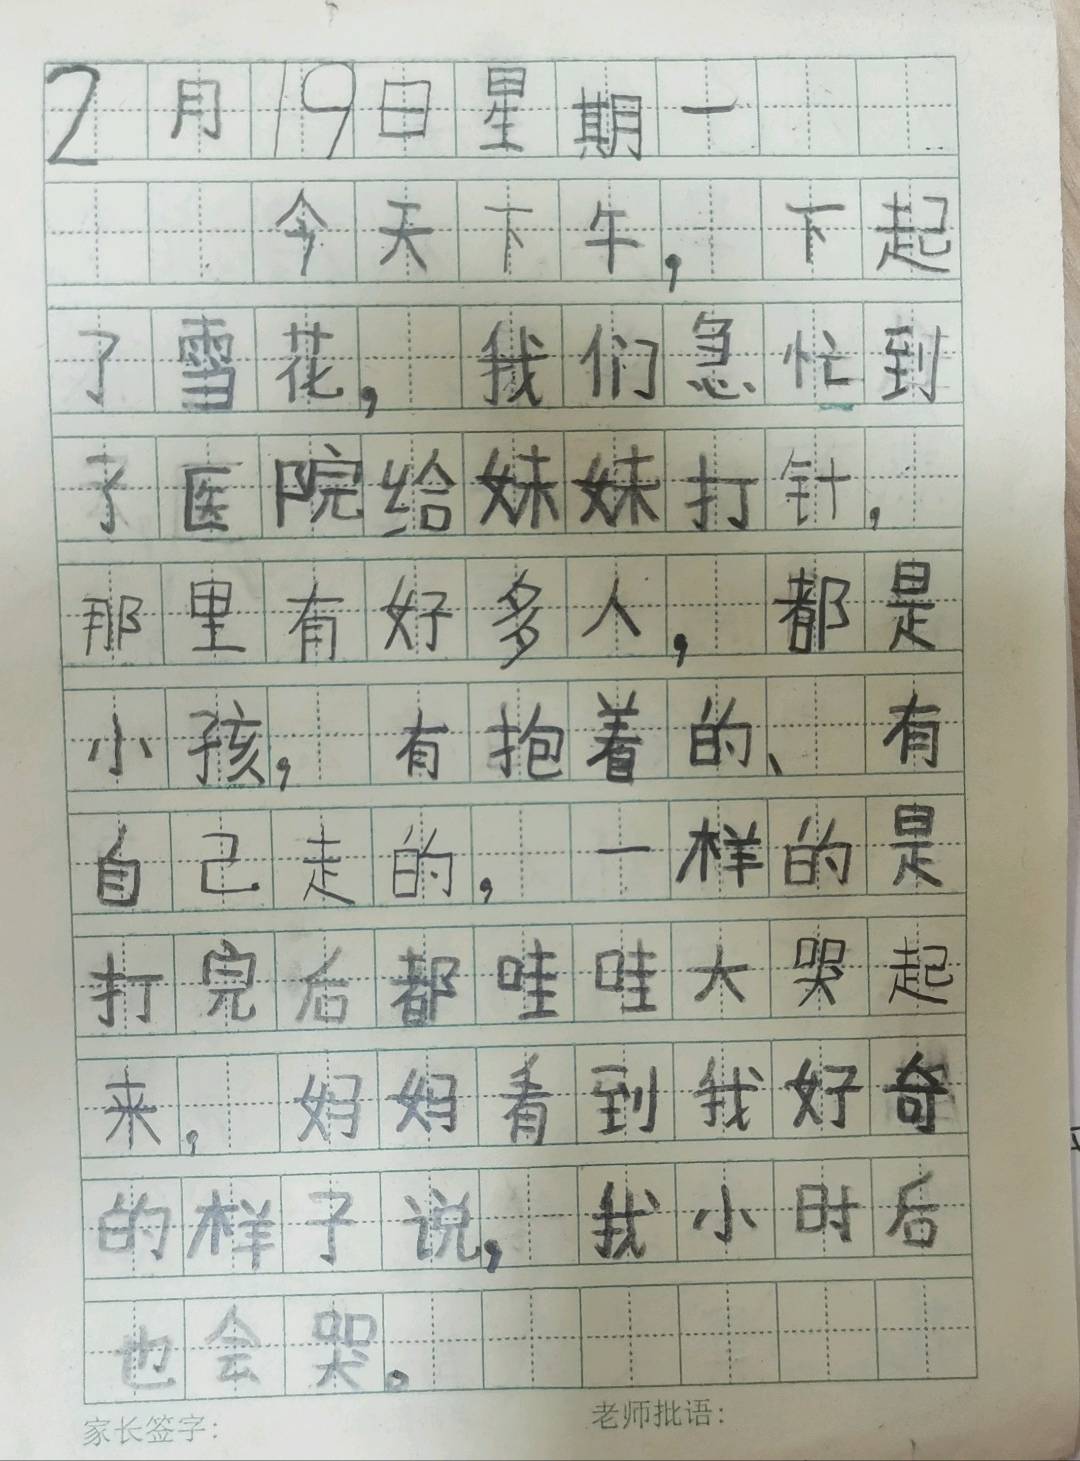 2月19日星期一
今天下午，下起
了雪花，我们急忙到
了医院给妹妹打针，
那里有好多人，都是
小孩，有抱着的、有
自己走的，一样的是
打完后都哇哇大哭起
来，妈妈看到我好奇
的样子说，我小时后
也会哭。
家长签字： 老师批语：